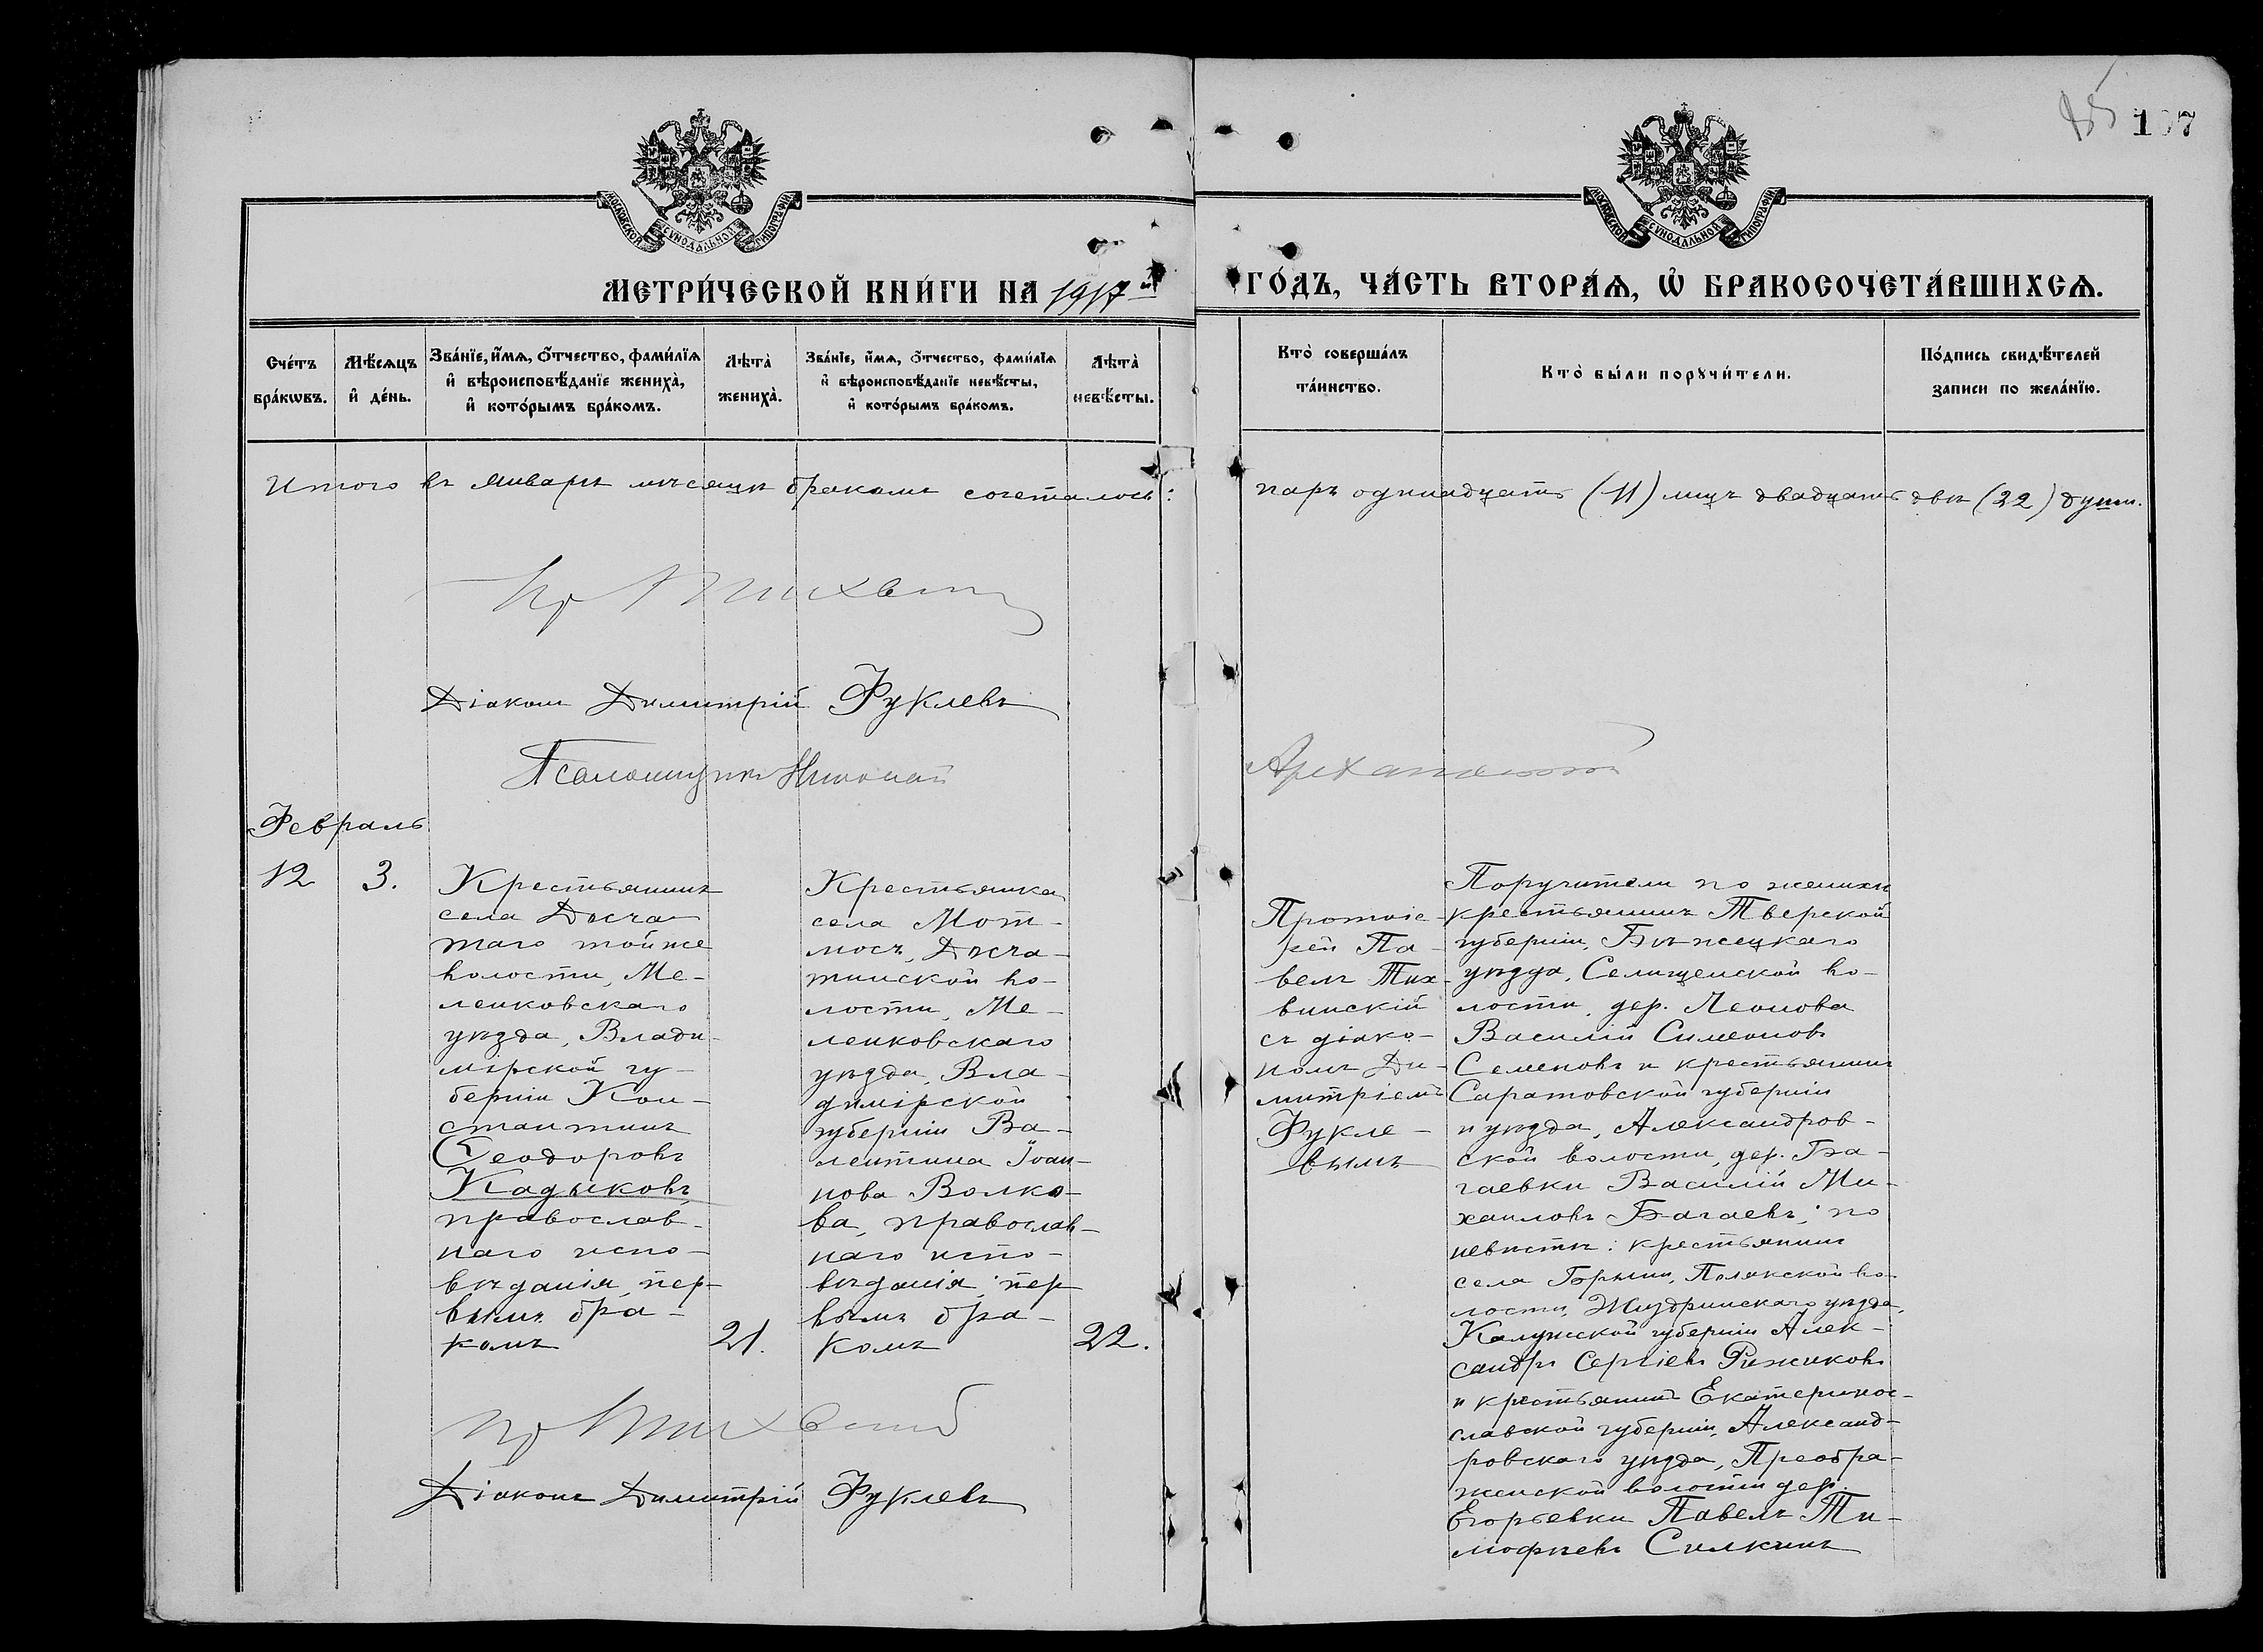 107
МОСКОВСКОЙ СѴНОДАЛЬНОЙ ТИПОГРАФІИ
МОСКОВСКОЙ СѴНОДАЛЬНОЙ ТИПОГРАФІИ
МЕТРИ́ЧЕСКОЙ КНИ́ГИ НА 1917й
ГО́ДЪ, ЧА́СТЬ ВТОРА́Ѧ, Ѽ БРАКОСОЧЕТА́ВШИХСѦ.
Сче́тъ
бра́кѡвъ.
Мѣ́сѧцъ
и҆ де́нь.
Зва́нїе, и҆́мѧ, ѻ҆́тчество, фами́лїѧ
и҆ вѣроисповѣ́данїе жениха̀,
и҆ кото́рымъ бра́комъ.
Лѣта̀
жениха̀.
Зва́нїе, и҆́мѧ, ѻ҆́тчество, фами́лїѧ
и҆ вѣроисповѣ́данїе невѣ́сты,
и҆ кото́рымъ бра́комъ.
Лѣта̀
невѣ́сты.
Кто̀ соверша́лъ
та́инство.
Кто̀ бы́ли порꙋчи́тели.
По́дпись свидѣ́телей
записи по жела́нїю.
Итого въ Январѣ мѣсяцѣ бракомъ сочеталось:
паръ одиннадцать (11) лицъ двадцать двѣ (22) души.
Діаконъ Димитрій Фуклевъ
Псаломщикъ Николай
Архангельскій
Февраль
12
3.
Крестьянинъ
села Досча-
таго той же
волости, Ме-
ленковскаго
уѣзда, Влади-
мірской гу-
берніи Кон-
стантинъ
Ѳеодоровъ
Кадыковъ,
православ-
наго испо-
вѣданія, пер-
вымъ бра-
комъ
21.
Крестьянка
села Мот-
мосъ, Досча-
тинской во-
лости, Ме-
ленковскаго
уѣзда, Вла-
димірской
губерніи Ва-
лентина Іоан-
нова Волко-
ва, православ-
наго испо-
вѣданія, пер
вымъ бра-
комъ
22.
Протоіе-
рей Па-
велъ Тих-
винскій
съ діако-
номъ Ди-
митріемъ
Фукле-
вымъ
Поручители по женихѣ
крестьянинъ Тверской
губерніи, Бѣжецкаго
уѣзда, Селищенской во-
лости, дер. Леонова
Василій Симеоновъ
Семеновъ и крестьянинъ
Саратовской губерніи
и уѣзда, Александров-
ской волости, дер. Ба-
гаевки Василій Ми-
хаиловъ Багаевъ; по
невѣстѣ: крестьянинъ
села Брыни, Плохской во-
лости, Жиздринскаго уѣзда,
Калужской губерніи Алек-
сандръ Сергіевъ Рижиковъ
и крестьянинъ Екатеринос-
лавской губерніи, Александ-
ровскаго уѣзда, Преобра-
женской волости дер.
Егорьевки Павелъ Ти-
мофѣевъ Силкинъ
Діаконъ Димитрій Фуклевъ